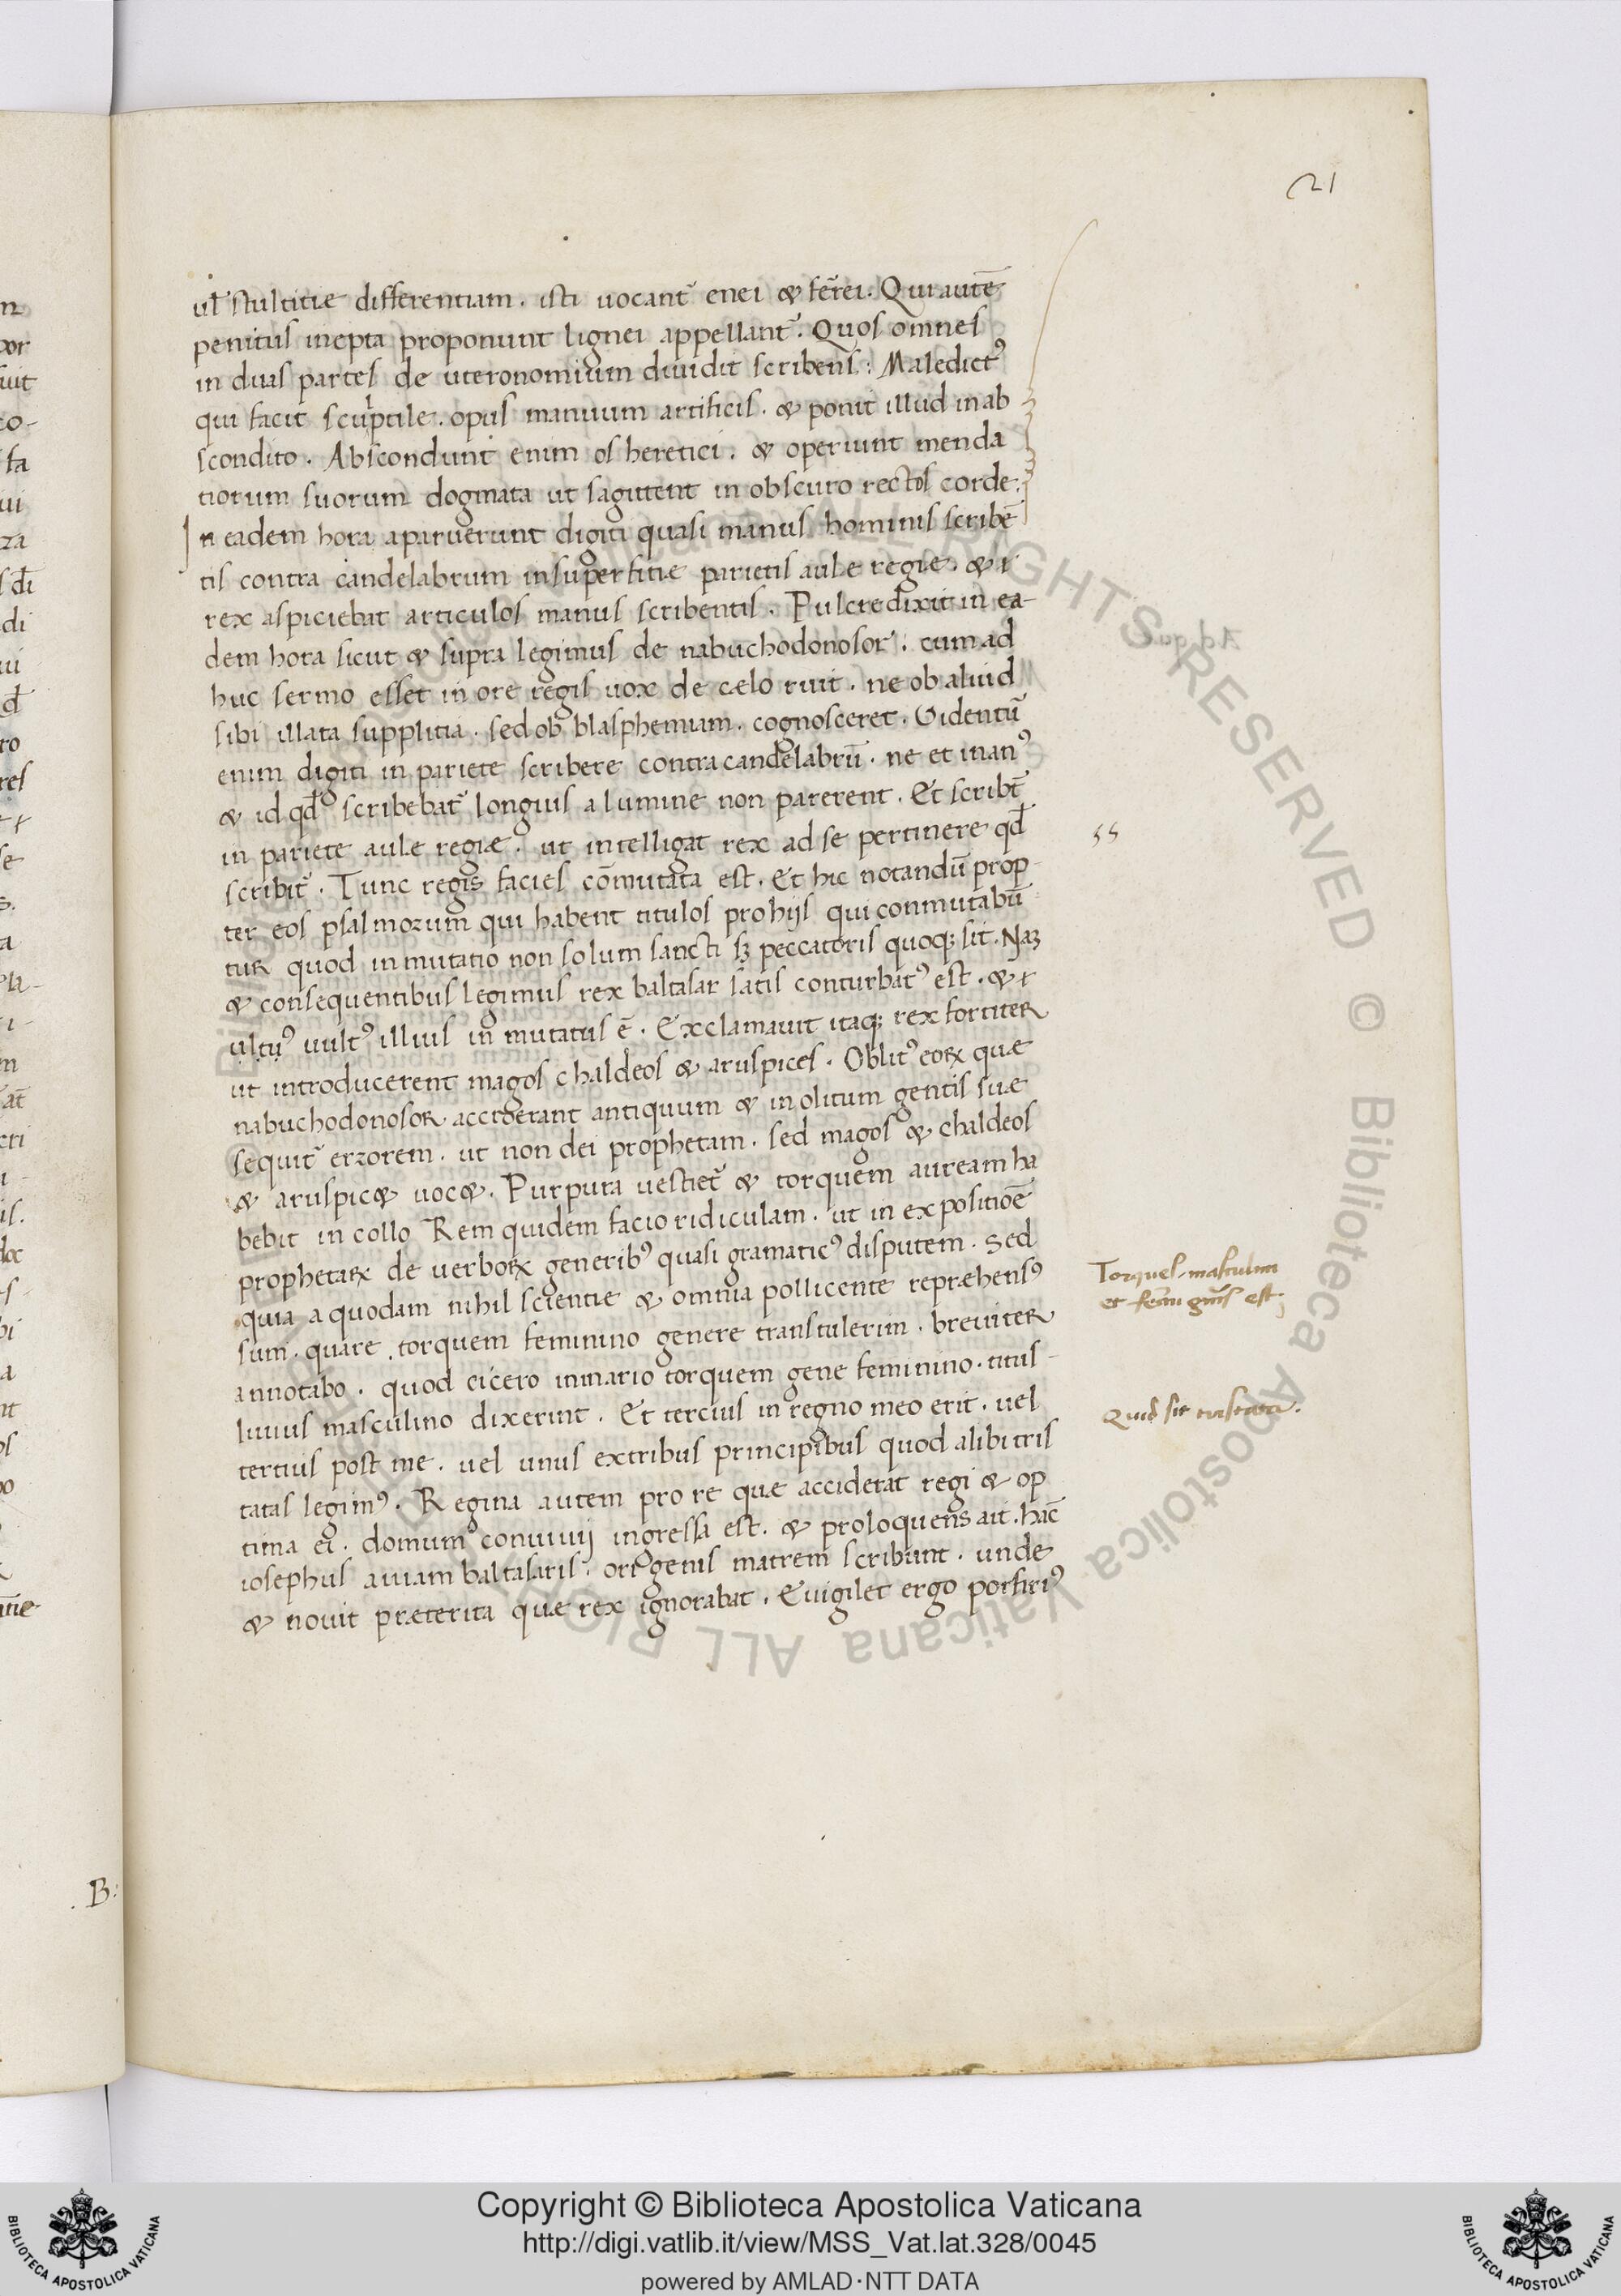 21
ul̄ stultitie differentiam . isti uocant᷑ enei & fer̄ei . Qui autē
penitus inepta proponunt lignei appellant᷑ . Quos omnes
in duas partes de uteronomium diuidit scribens : Maledictꝰ
qui facit sculptile . opus manuum artificis . & ponit illud in ab
scondito . Abscondunt enim os heretici . & operiunt menda
tiorum suorum dogmata ut sagittent in obscuro rectos corde .
In eadem hora aparuerunt digiti quasi manus hominis scribē
tis contra candelabrum in superfitie parietis aule regie . &
rex aspiciebat articulos manus scribentis . Pulcre dixit in ea-
dem hora sicut & supra legimus de nabuchodonosor . cum ad
huc sermo esset in ore regis uox de cælo ruit . ne ob aliud
sibi illata supplitia . sed ob blasphemiam . cognosceret . Uidentū
enim digiti in pariete scribere contra candelabrū . ne et manꝰ
& id qd̄ scribebat᷑ longius a lumine non parerent . Et scribt᷑
in pariete aule regiæ . ut intelligat rex ad se pertinere qd̄
scribit᷑ . Tunc regis facies cōmutata est . Et hic notandū prop-
ter eos psalmorum qui habent titulos pro hijs qui conmutabū
tur quod inmutatio non solum sancti sꝫ peccatoris quoqꝫ sit . Naꝫ
& consequentibus legimus rex baltasar satis conturbatꝰ est . &
ultꝰ uultꝰ illius in mutatus ē . Exclamauit itaqꝫ rex fortiter
ut introducerent magos chaldeos & aruspices . Oblitꝰ eoꝝ quæ
nabuchodonosor acciderant antiquum & inolitum gentis suæ
sequit᷑ errorem . ut non dei prophetam . sed magos & chaldeos
& aruspic& uoc& . Purpura uestiet᷑ & torquem auream ha
bebit in collo Rem quidem facio ridiculam . ut in expositiōe
prophetaꝝ de uerboꝝ generibꝰ quasi gramaticꝰ disputem . Sed
quia a quodam nihil scientie & omnia pollicente repræhensꝰ
sum . quare . torquem feminino genere transtulerim . breuiter
annotabo . quod cicero in mario torquem gene feminino . titus
liuius masculino dixerint . Et tercius in regno meo erit . uel
tertius post me . uel unus ex tribus principibus quod alibi tris
tatas legimꝰ . Regina autem pro re quæ acciderat regi & op
tima ei . domum conuiuij ingressa est . & proloquens ait . hāc
iosephus auiam baltasaris . origenis matrem scribunt . unde
& nouit præterita quæ rex ignorabat . Euigilet ergo porfiriꝰ
55
Torques masculini
et fem̄i gn̄is est
Quid sit tristata .
. B :
Copyright © Biblioteca Apostolica Vaticana
http://digi.vatlib.it/view/MSS_Vat.lat.328/0045
powered by AMLAD·NTT DATA
BIBLIOTECA APOSTOLICA VATICANA
BIBLIOTECA APOSTOLICA VATICANA